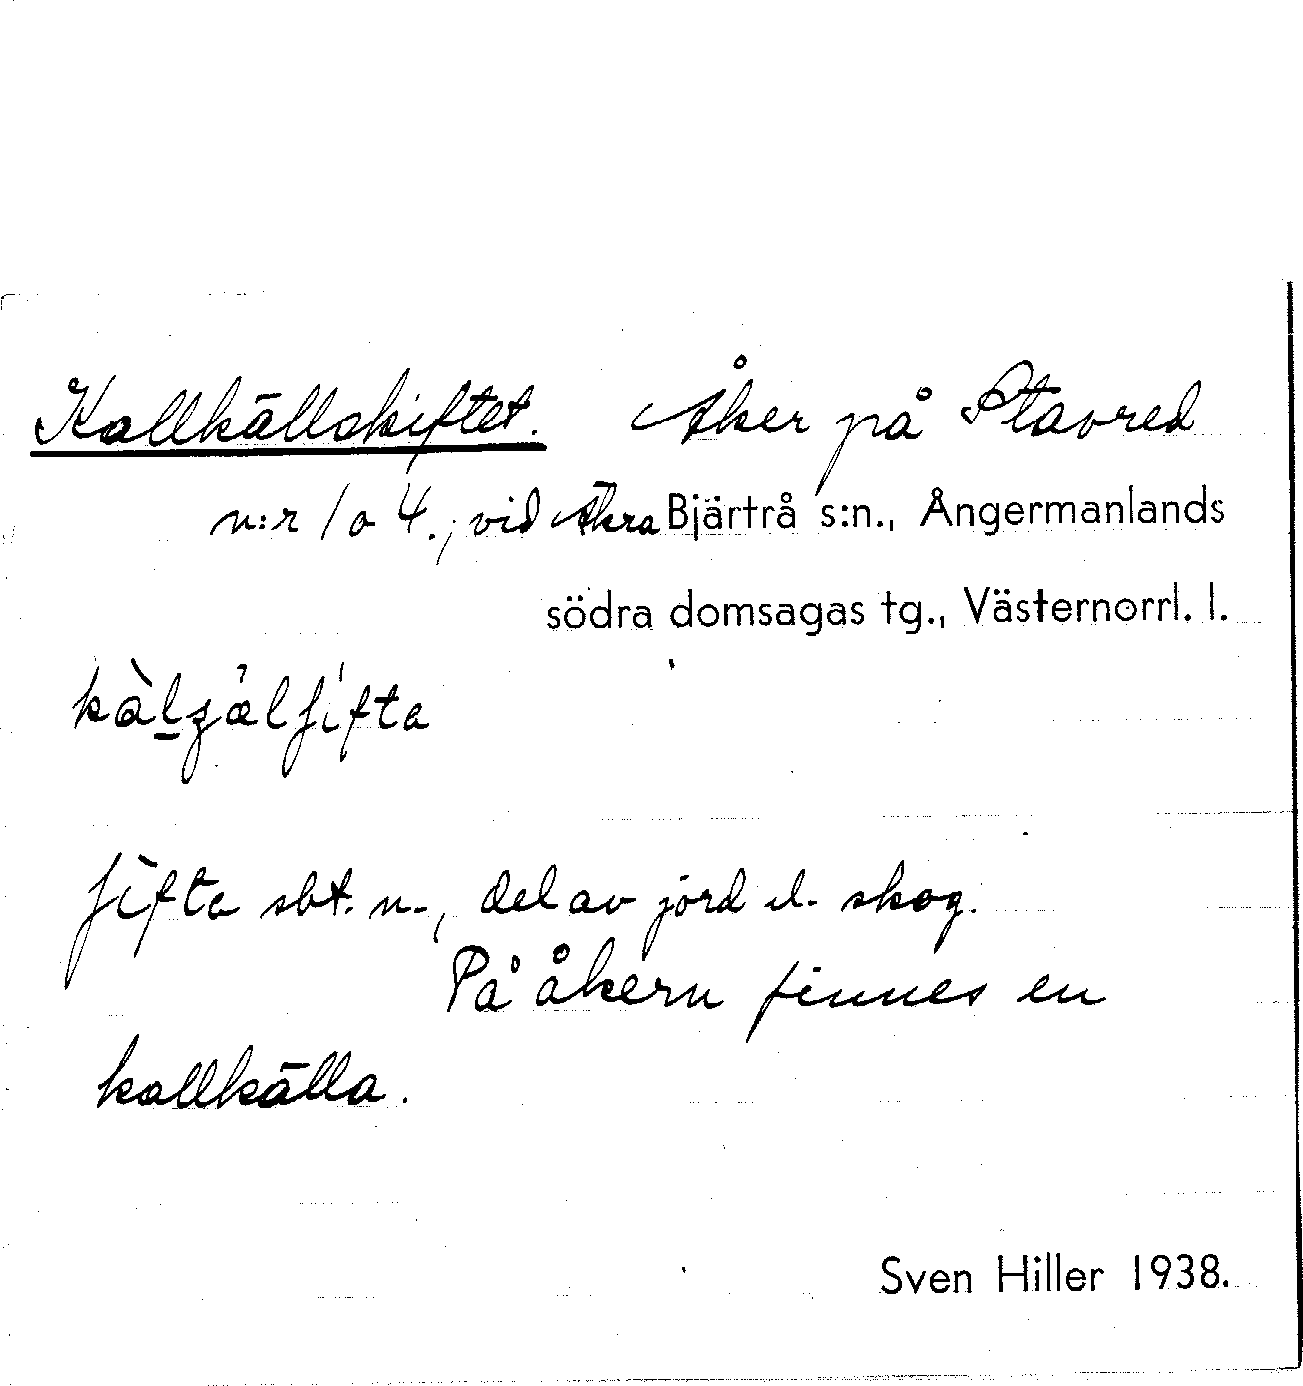 Kallkällskiftet. Åker på Stavred
n:r 1 o 4., vid Åkra Bjärtrå s:n., Ångermanlands
södra domsagas tg., Västernorrl. l.
sbt. n., del av jord el. skog.
På åkern finnes en
kallkälla.
Sven Hiller 1938.